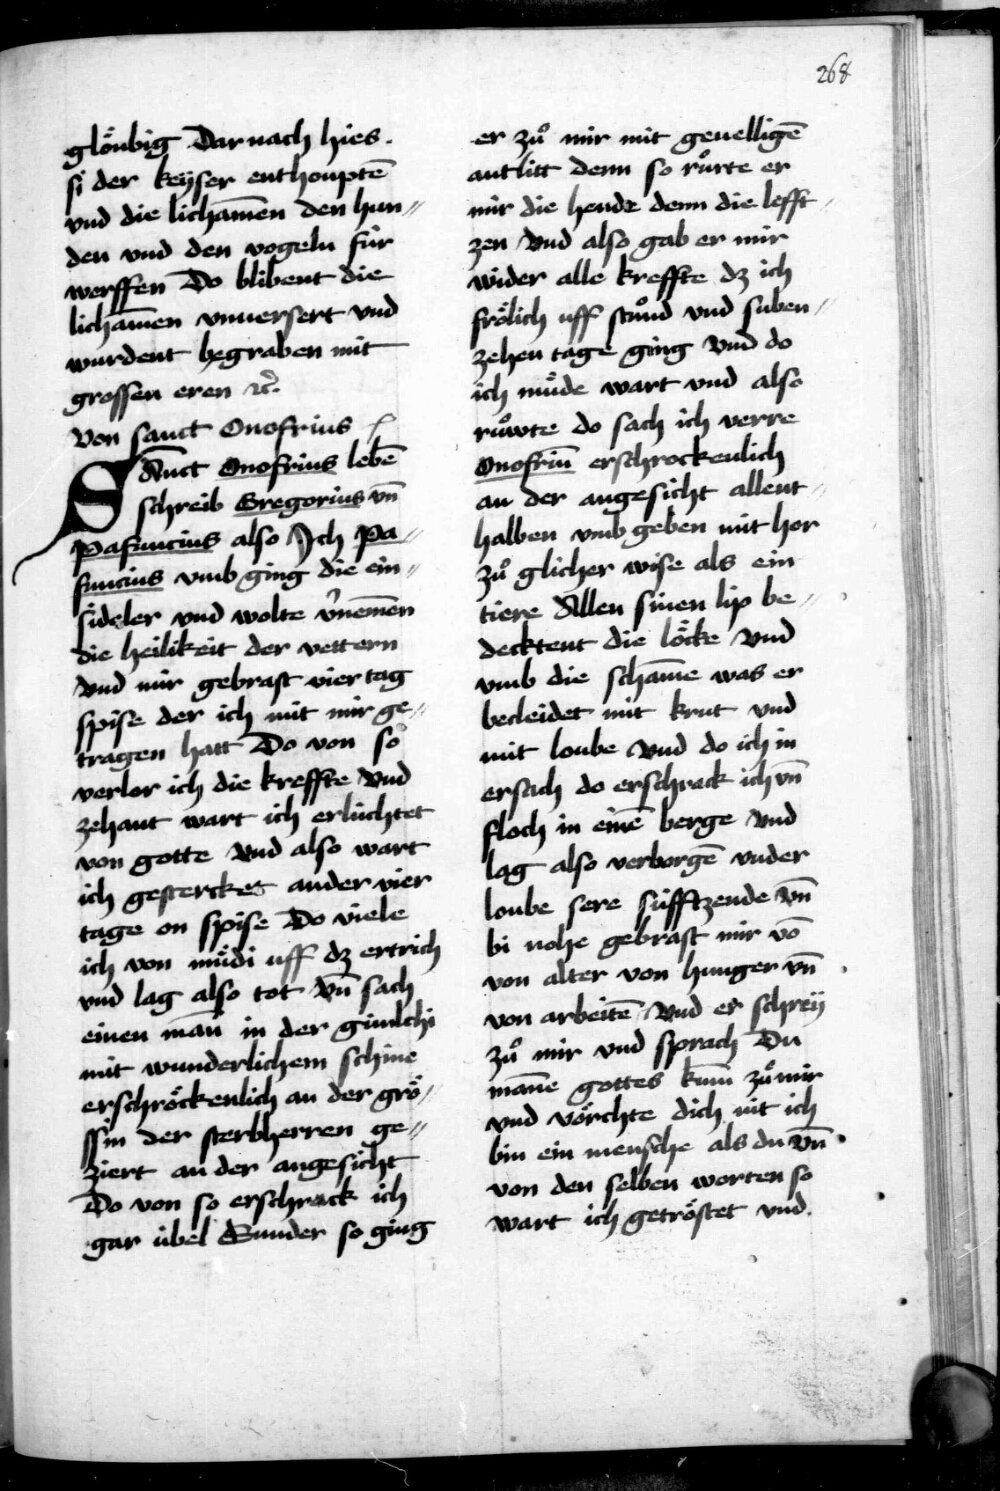 268
glöubig Dar nach hies
si der keyser enthouptē
vnd die lichamēn den hun〃
den vnd den vogeln für
werffen Do blibent die
lichamēn vnuersert vnd
wurdent begraben mit
grossen eren ꝛc̄.
Von sanct Onofrius
SAnct Onofrius lebē
schreib Gregorius vn̄
Pafuncius also Ich Pa〃
funcius vmb ging die ein〃
sideler vnd wolte v̓nemēn
die heilikeit der vettern
vnd mir gebrast vier tag
spise der ich mit mir ge〃
tragen hatt Do von so
verlor ich die kreffte vnd
zehant wart ich erlüchtet
von gotte vnd also wart
ich gestercket ander vier
tage on spise Do viele
ich von müdi uff dz ertrich
vnd lag also tot vn̄ sach
einen man̄ in der gimlchi
mit wunderlichem schine
erschröckenlich an der grö〃
ssin der sterbherren ge〃
ziert an der angesicht
Do von so erschrack ich
gar übel Sunder so ging
er zuͦ mir mit geuelligē
antlitt denn so ruͦrte er
mir die hende denn die lefft〃
zen vnd also gab er mir
wider alle kreffte dz ich
frölich uff stuͦnd vnd suben〃
zehen tage ging vnd do
ich müde wart vnd also
ruͦwte do sach ich verre
Onofriū erschrockenlich
an der angesicht allent〃
halben vmb geben mit hor
zuͦ glicher wise als ein
tiere Allen sinen lip be〃
decktent die löcke vnd
vmb die schamē was er
becleidet mit krut vnd
mit loube vnd do ich in
ersach do erschrack ich vn̄
floch in einē berge vnd
lag also verborgē vnder
loube sere süfftzende vn̄
bi nohe gebrast mir vō
von alter von hunger vn̄
von arbeitē vnd er schrey
zuͦ mir vnd sprach Du
man̄e gottes kum̄ zuͦ mir
vnd vörchte dich nit ich
bin ein mensche als du vn̄
von den selben worten so
wart ich getröstet vnd